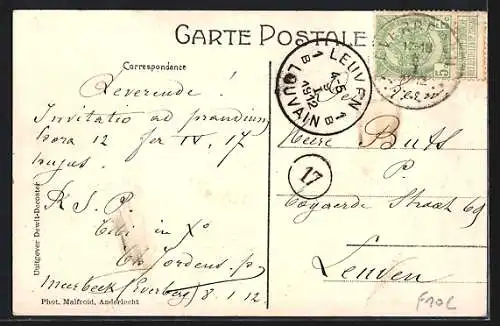 CARTE POSTALE
Correspondance
Reverende!
Invitatio ad prandium
hora 12 fer IV, 17
hujus.
R S. P.
tibi in Xo
Jordens, p.
Meerbeek (Everberg) 8.1.12
Uitgever Dewit-Decoster
Phot. Malfroid, Anderlecht
LEUVEN 1B
4-5
1912
1B LOUVAIN
EVERBERG
5
17
Heere Buts
P
Straat 69
Leuven